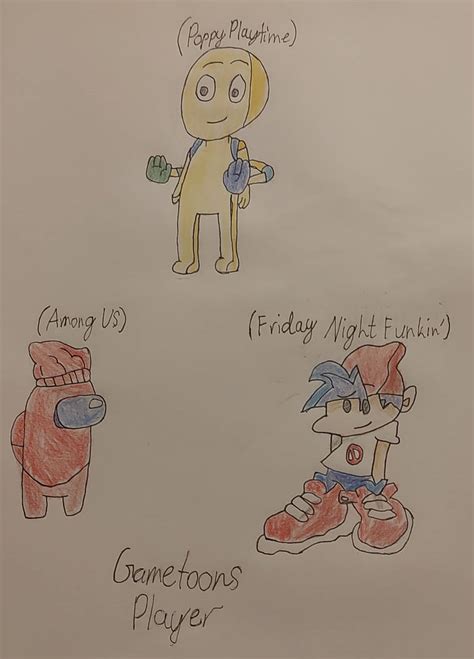 (Poppy Playtime)
(Among Us)
(Friday Night Funkin')
Gametoons
Player